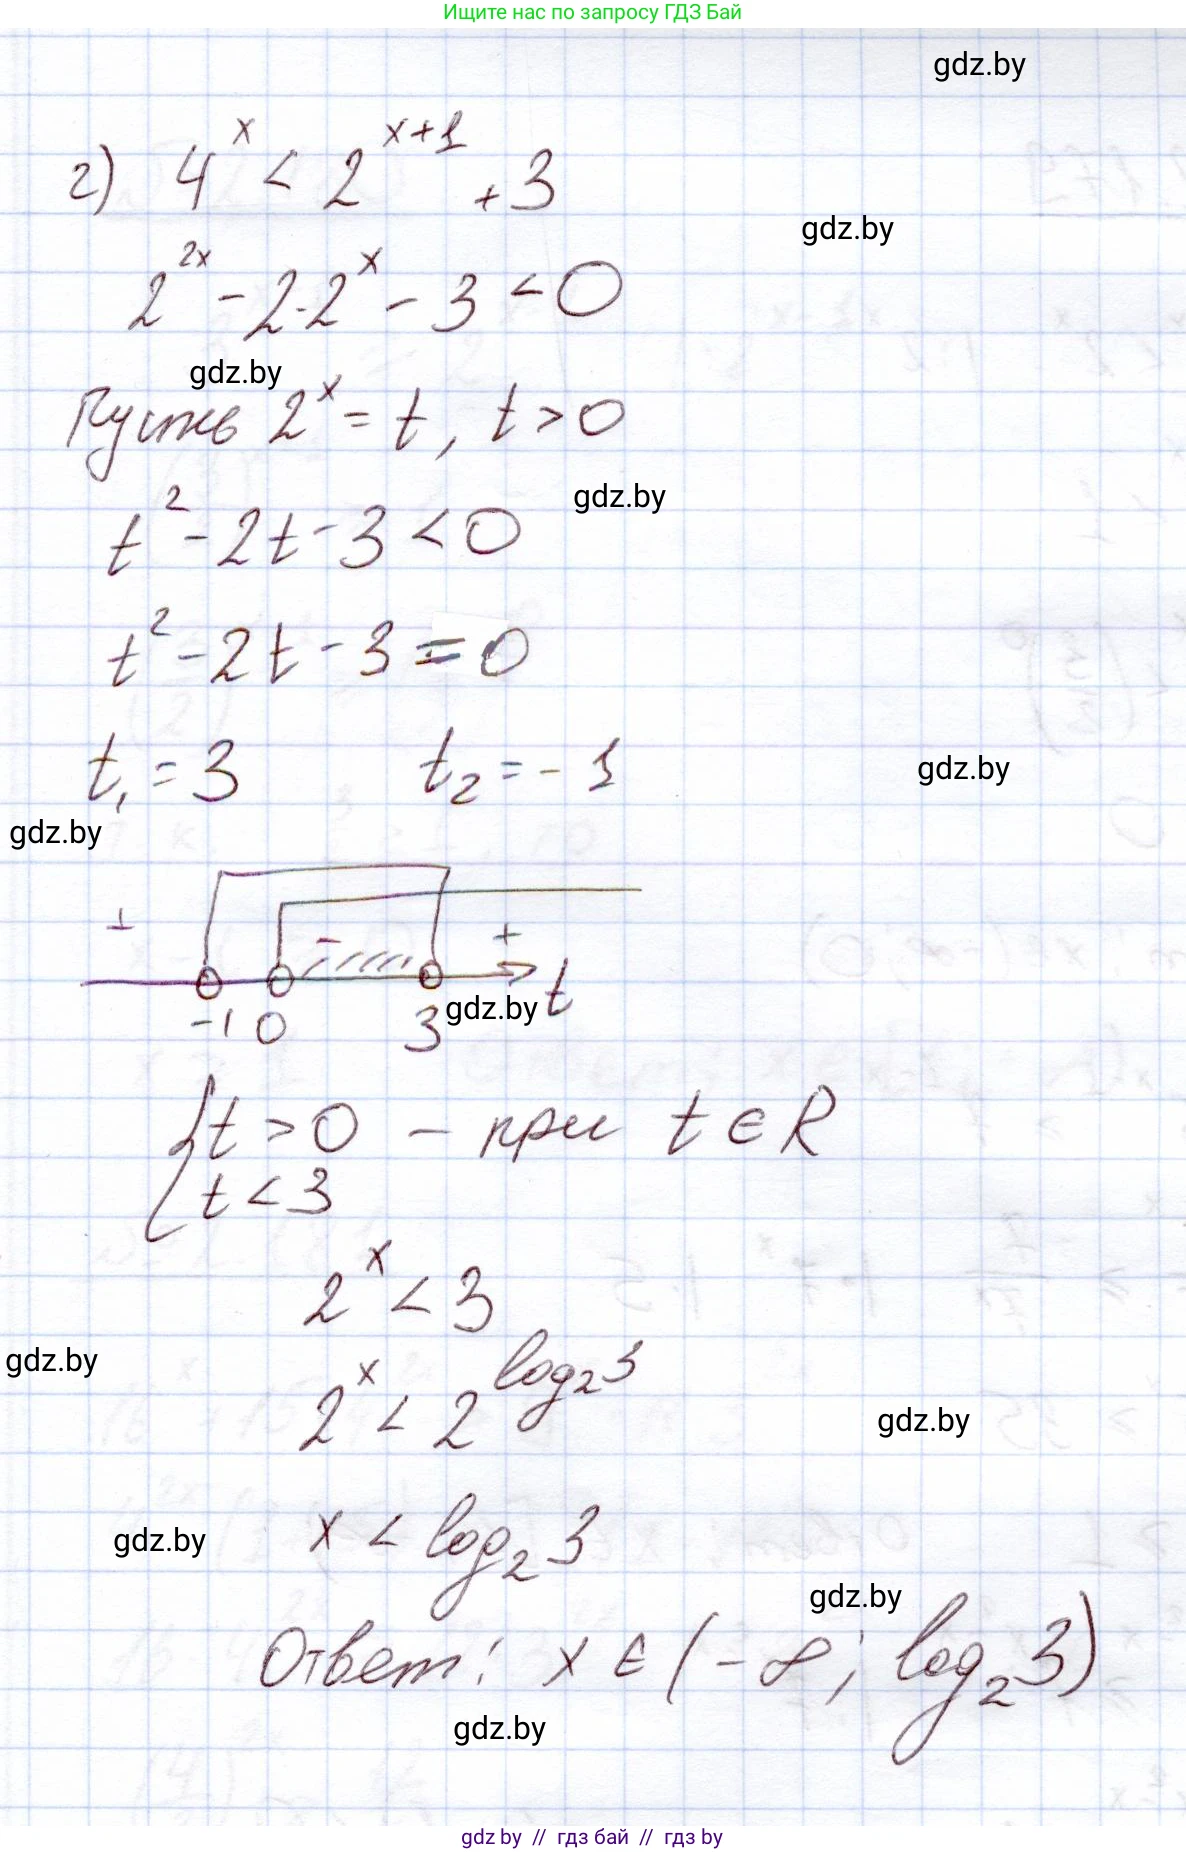 Ищите нас по запросу ГДЗ Бай
gdz.by
г) 4^x < 2^{x+1} + 3
gdz.by
2^{2x} - 2·2^x - 3 < 0
gdz.by
Пусть 2^x = t, t > 0
gdz.by
t^2 - 2t - 3 < 0
t^2 - 2t - 3 = 0
t_1 = 3 t_2 = -1
gdz.by
gdz.by
+ - +
-1 0 3 t
gdz.by
{ t > 0 — при t ∈ R
t < 3
2^x < 3
gdz.by
2^x < 2^{log_2 3}
gdz.by
x < log_2 3
gdz.by
gdz.by
Ответ: x ∈ (-∞; log_2 3)
gdz.by
gdz by // гдз бай // гдз by